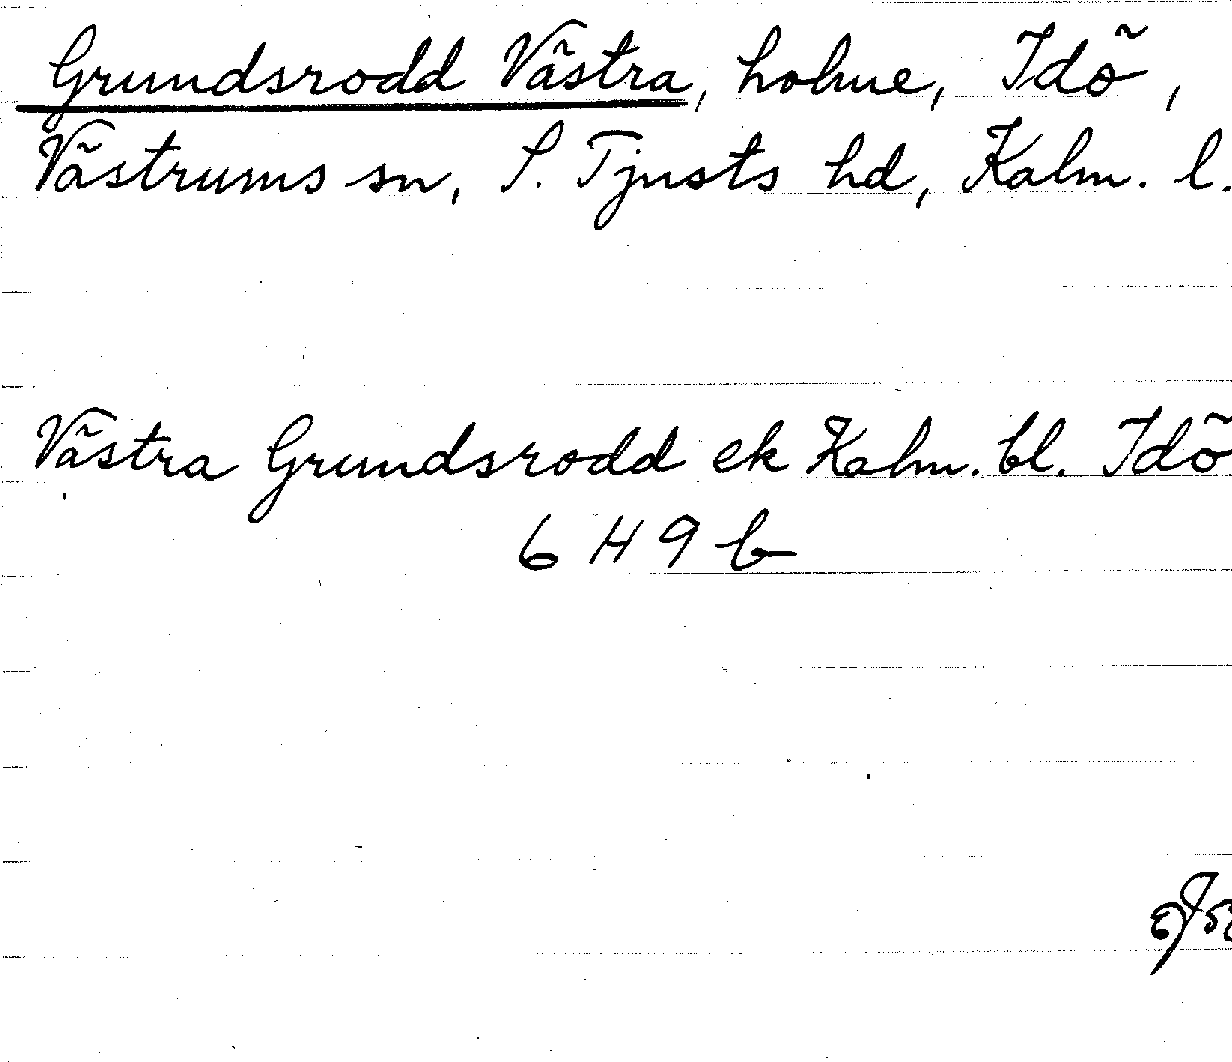 Grundsrodd Västra, holme, Idö,
Västrums sn, S. Tjusts hd, Kalm. l.
Västra Grundsrodd ek Kalm. bl. Idö
6 H 9 b